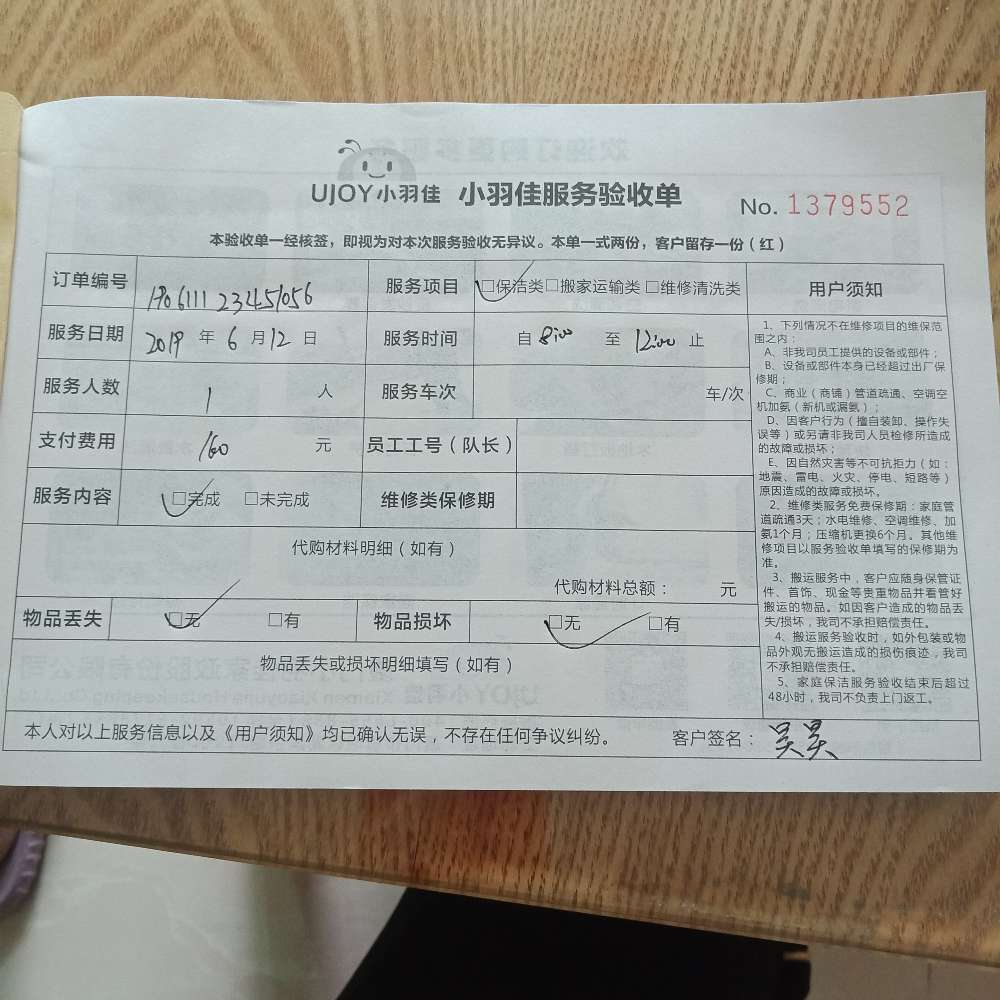 UJOY小羽佳 小羽佳服务验收单
No. 1379552
本验收单一经核签，即视为对本次服务验收无异议。本单一式两份，客户留存一份（红）
订单编号
服务项目 □保洁类□搬家运输类 □维修清洗类
服务日期 2019 年 6 月 12 日
服务时间 自 8:00 至 12:00 止
服务人数 1 人
服务车次 车/次
支付费用 160 元
员工工号（队长）
服务内容 □完成 □未完成
维修类保修期
代购材料明细（如有）
代购材料总额： 元
物品丢失 □无 □有
物品损坏 □无 □有
物品丢失或损坏明细填写（如有）
本人对以上服务信息以及《用户须知》均已确认无误，不存在任何争议纠纷。
客户签名： 吴昊
用户须知
1、下列情况不在维修项目的维保范
围之内：
A、非我司员工提供的设备或部件；
B、设备或部件本身已经超过出厂保
修期；
C、商业（商铺）管道疏通、空调空
机加氨（新机或漏氨）；
D、因客户行为（擅自装卸、操作失
误等）或另请非我司人员检修所造成
的故障或损坏；
E、因自然灾害等不可抗拒力（如：
地震、雷电、火灾、停电、短路等）
原因造成的故障或损坏。
2、维修类服务免费保修期：家庭管
道疏通3天；水电维修、空调维修、加
氨1个月；压缩机更换6个月。其他维
修项目以服务验收单填写的保修期为
准。
3、搬运服务中，客户应随身保管证
件、首饰、现金等贵重物品并看管好
搬运的物品。如因客户造成的物品丢
失/损坏，我司不承担赔偿责任。
4、搬运服务验收时，如外包装或物
品外观无搬运造成的损伤痕迹，我司
不承担赔偿责任。
5、家庭保洁服务验收结束后超过
48小时，我司不负责上门返工。